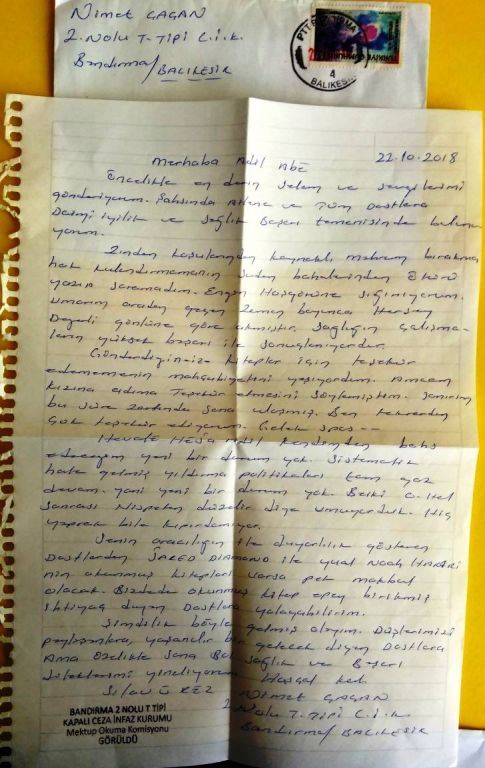 Nimet GAGAN
2. Nolu T. TİPİ C.İ.K.
Bandırma/BALIKESİR
PTT BANDIRMA
4
BALIKESİR
TÜRKİYE CUMHURİYETİ
Merhaba Adil Abê 22.10.2018
Öncelikle en derin selam ve sevgilerimi
gönderiyorum. Şahsında Ailene ve Tüm Dostlara
Daimi iyilik ve Sağlık Başarı temenisinde bulunu
yorum.
Zindan koşularından kaynaklı mahrem bırakma
hak
yazıp soramadım. Engin Hoşgörüne sığınıyorum.
Umarım aradan geçen Zaman boyunca Herşey
Değerli gönlüne göre olmuştur. Sağlığın çalışma-
ların yüksek başarı ile sonuçlanıyordur.
Gönderdiğin-iz kitaplar için teşekür
edememenin mahçubiyetini yaşıyordum. Amcam
kızına adıma Teşekür etmesini söylemiştim. Sanırım
bu süre zarfında sana ulaşmış. Ben tekrardan
çok teşekür ediyorum. Gelek spas --
Hevalê HEJA Adil kendimden bahs
edeceğim yeni bir durum yok. Sistematik
hale gelmiş yıldırma politikaları tam gaz
devam. yani yeni bir durum yok. Belki O-Hal
Sonrası Nispeten düzelir diye umuyorduk. Hiç
yaprak bile kıpırdamıyor.
Senin aracılığın ile duyarlılık gösteren
Dostlardan JARED DIAMOND ile yual Noah HARARİ
nin okunmuş kitapları varsa pek makbul
olacak. Bizdede okunmuş kitap epey birikmiş
ihtiyaç duyan Dostlara yolayabilirim.
Şimdilik böyle gelmiş olayım. Düşlerimizi
paylaşanlara, yaşanılır bir gelecek diyen Dostlara
Ama özelikle sana Bol Sağlık ve Başarı
dileklerimi yineliyorum. Hoşçal kal.
Silav Û REZ
Nimet GAGAN
2. Nolu T. TİPİ C.İ.K.
Bandırma/BALIKESİR
BANDIRMA 2 NOLU T TİPİ
KAPALI CEZA İNFAZ KURUMU
Mektup Okuma Komisyonu
GÖRÜLDÜ